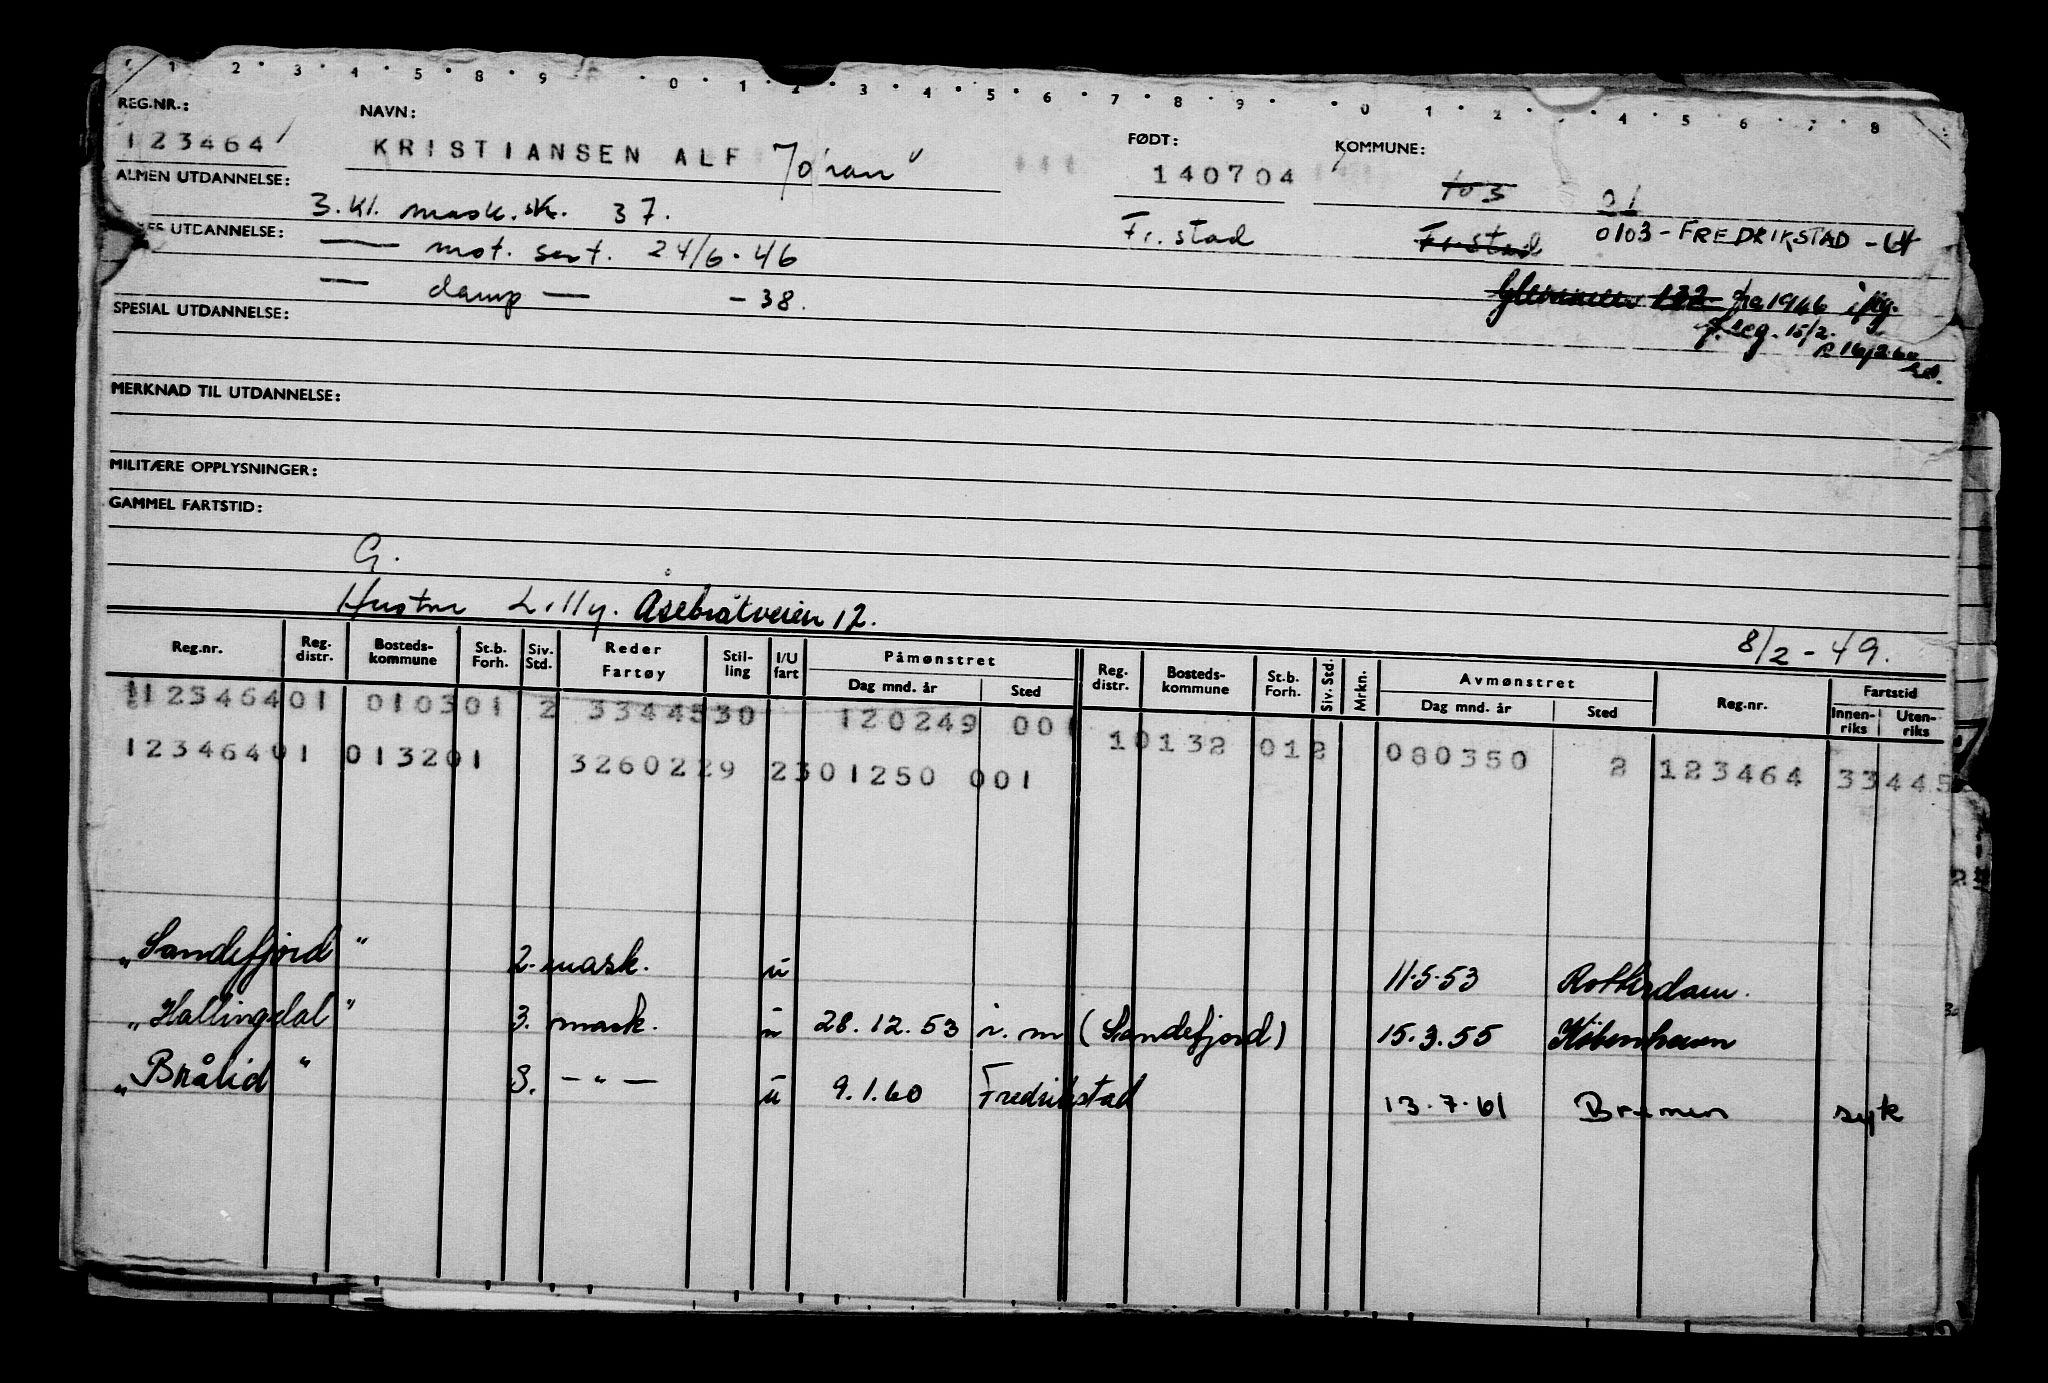 1 2 3 4 5 8 9 0 1 2 3 4 5 6 7 8 9 0 1 2 3 4 5 6 7 8
REG.NR.: NAVN: FØDT: KOMMUNE:
123464 KRISTIANSEN ALF 140704 103 01
ALMEN UTDANNELSE: 3. Kl. mask.sk. 37. Fr.stad Fr.stad 0103 - FREDRIKSTAD - 64
UTDANNELSE: — mot. sert. 24/6.46
— damp — - 38. 132 fra 1946
SPESIAL UTDANNELSE: 15/2.
MERKNAD TIL UTDANNELSE:
MILITÆRE OPPLYSNINGER:
GAMMEL FARTSTID:
G.
Hustru Lilly. Åsebråtveien 12. 8/2 - 49.
Reg.nr. Reg. distr. Bosteds-kommune St.b. Forh. Siv. Std. Reder Fartøy Stil-ling I/U fart Påmønstret Dag mnd. år Sted Reg. distr. Bosteds-kommune St.b. Forh. Siv. Std. Mrkn. Avmønstret Dag mnd. år Sted Reg.nr. Fartstid Innen-riks Uten-riks
12346401 010301 2 3344530 120249 001 10132 012 080350 2 123464 33445
12346401 013201 3260229 2301250 001
"Sandefjord" 2. mask. u 11.5.53 Rotterdam.
"Hallingdal" 3. mask. u 28.12.53 i. m (Sandefjord) 15.3.55 Köbenhavn
"Brålid" 3. — " — u 9.1.60 Fredrikstad 13.7.61 Bremen syk